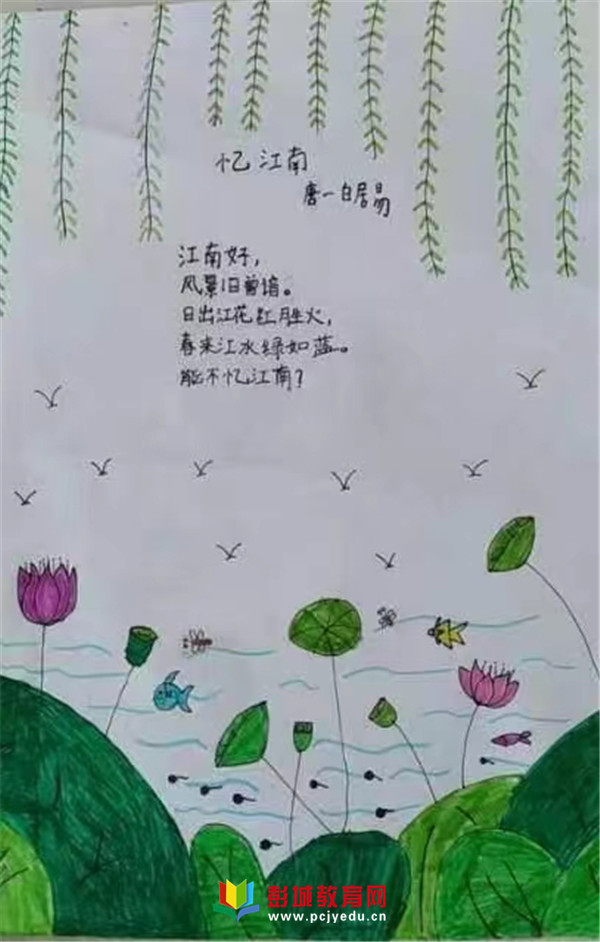 忆江南
唐一白居易
江南好，
风景旧曾谙。
日出江花红胜火，
春来江水绿如蓝。
能不忆江南？
彭城教育网
www.pcjyedu.cn